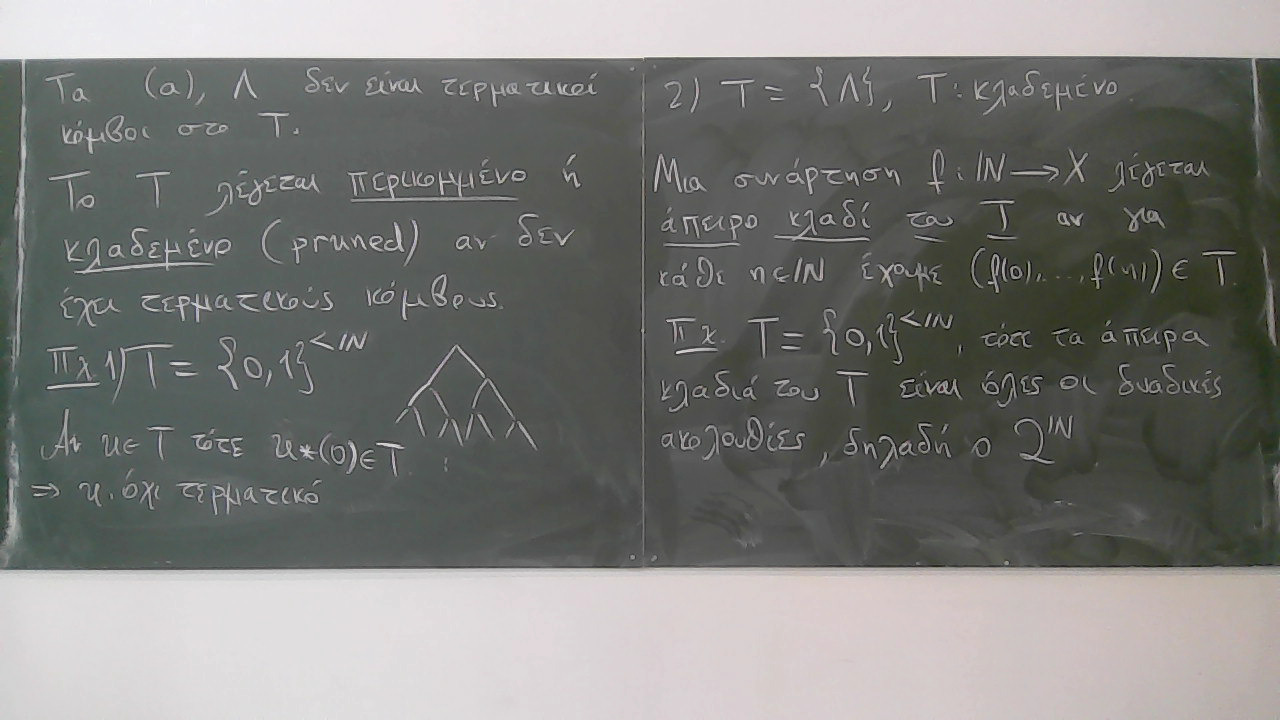 Τα (a), Λ δεν είναι τερματικοί
κόμβοι στο T.
Το T λέγεται περικομμένο ή
κλαδεμένο (pruned) αν δεν
έχει τερματικούς κόμβους.
Πχ 1) T = {0,1}^{<ℕ}
Αν u ∈ T τότε u*(0) ∈ T.
⇒ u όχι τερματικό
2) T = {Λ}, T: κλαδεμένο
Μια συνάρτηση f: ℕ → X λέγεται
άπειρο κλαδί του T αν για
κάθε n ∈ ℕ έχουμε (f(0),...,f(n)) ∈ T.
Πχ. T = {0,1}^{<ℕ}, τότε τα άπειρα
κλαδιά του T είναι όλες οι δυαδικές
ακολουθίες, δηλαδή ο 2^ℕ